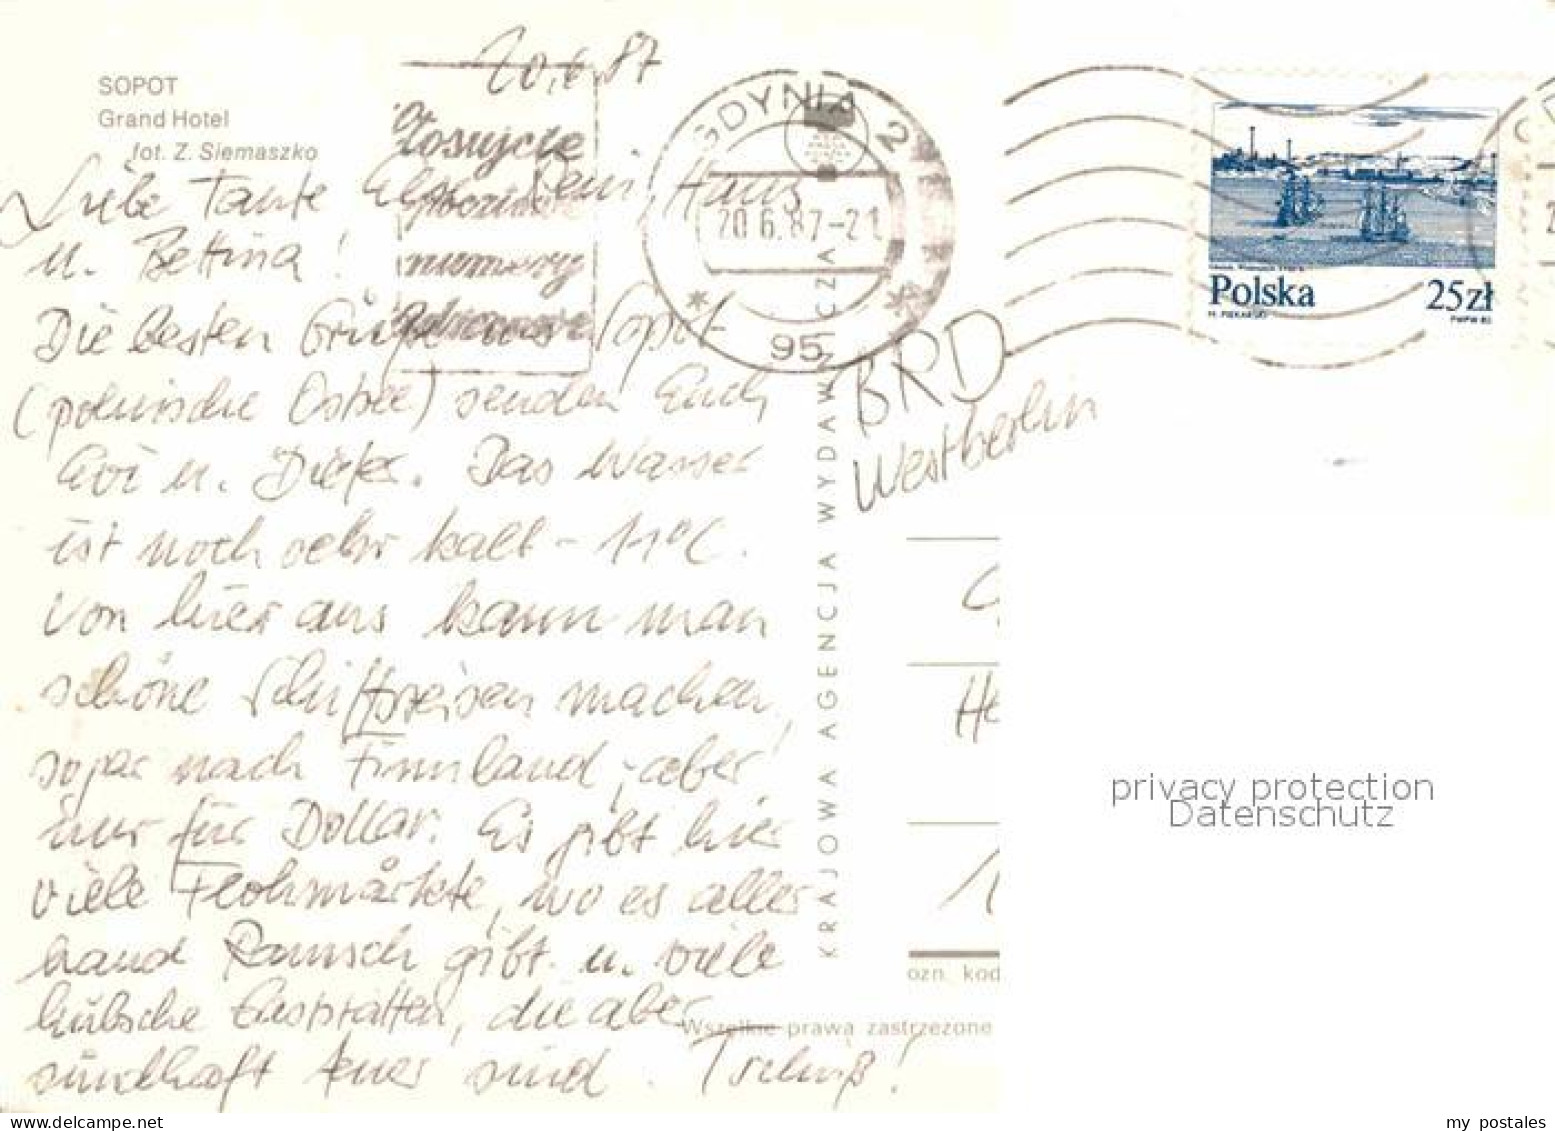 20.6.87
SOPOT
Grand Hotel
fot. Z. Siemaszko
GDYNIA 2
20.6.87-21
95
numery
Polska 25zł
Liebe Tante Hans
u. Bettina!
Die besten Grüße aus Sopot
(polnische Ostsee) senden Euch
u. Dieter. Das Wasser
ist noch sehr kalt - 11°C.
Von hier aus kann man
schöne Schiffsreisen machen,
sogar nach Finnland, aber
nur für Dollar. Es gibt hier
viele Flohmärkte, wo es aller
hand Ramsch gibt u. viele
hübsche Gaststätten, die aber
sündhaft teuer sind. Tschüß!
BRD
Westberlin
KRAJOWA AGENCJA WYDAWNICZA
He
ozn. kod
Wszelkie prawa zastrzeżone
privacy protection
Datenschutz
my postales